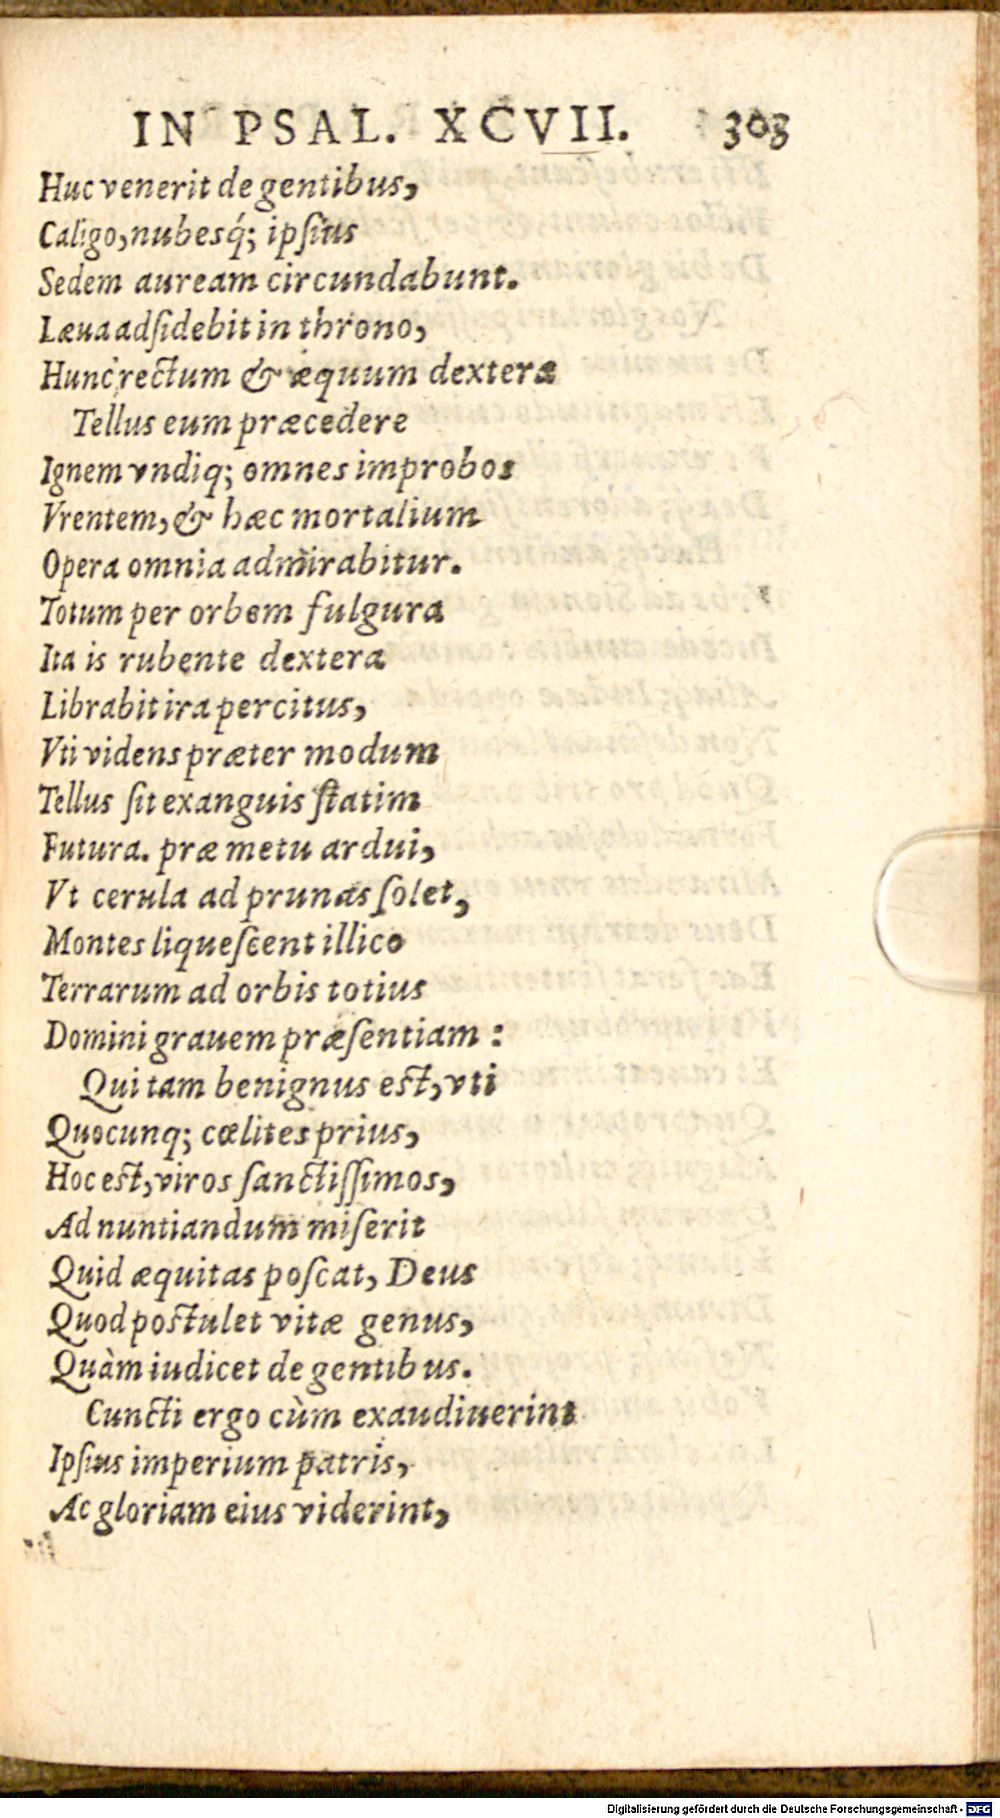 IN PSAL. XCVII. 303
Huc venerit de gentibus,
Caligo, nubesq́; ipſius
Sedem auream circundabunt.
Læua adſidebit in throno,
Hunc rectum & æquum dextera
Tellus eum præcedere
Ignem vndiq; omnes improbos
Vrentem, & hæc mortalium
Opera omnia admirabitur.
Totum per orbem fulgura
Ita is rubente dextera
Librabit ira percitus,
Vti videns præter modum
Tellus ſit exanguis ſtatim
Futura. præ metu ardui,
Vt cerula ad prunas ſolet,
Montes liqueſcent illico
Terrarum ad orbis totius
Domini grauem præſentiam :
Qui tam benignus est, vti
Quocunq; cœlites prius,
Hoc est, viros ſanctiſſimos,
Ad nuntiandum miſerit
Quid æquitas poſcat, Deus
Quod postulet vitæ genus,
Quàm iudicet de gentibus.
Cuncti ergo cùm exaudiuerint
Ipſius imperium patris,
Ac gloriam eius viderint,
Digitalisierung gefördert durch die Deutsche Forschungsgemeinschaft - DFG